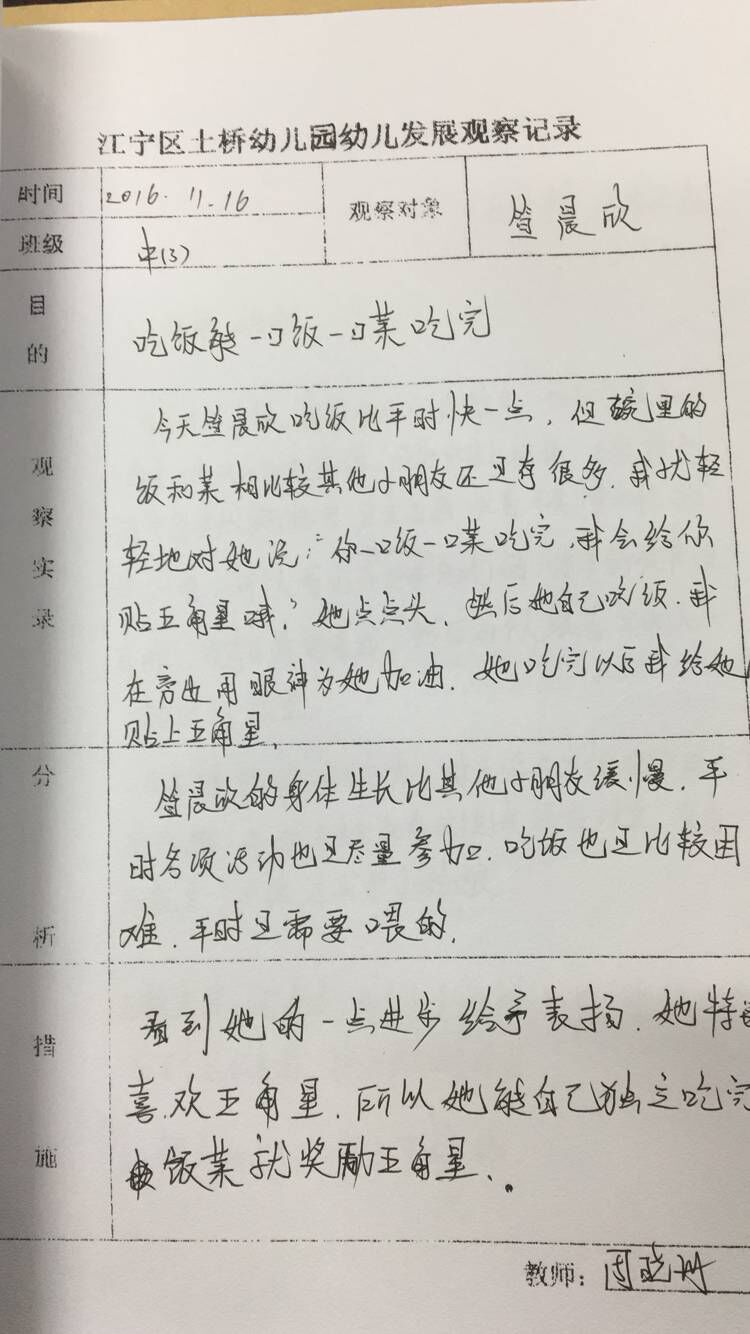 江宁区土桥幼儿园幼儿发展观察记录
时间 2016.11.16 观察对象 笪晨欣
班级 中(3)
目的 吃饭能一口饭一口菜吃完
观察实录
今天笪晨欣吃饭比平时快一点，但碗里的
饭和菜相比较其他小朋友还是有很多，我就轻
轻地对她说：“你一口饭一口菜吃完，我会给你
贴五角星哦，”她点点头，然后她自己吃饭，我
在旁边用眼神为她加油，她吃完以后我给她
贴上五角星，
分析
笪晨欣的身体生长比其他小朋友缓慢，平
时各项活动也是尽量参加，吃饭也是比较困
难，平时是需要喂的，
措施
看到她的一点进步给予表扬，她特
喜欢五角星，所以她能自己独立吃完
饭菜就奖励五角星、。
教师：周晓